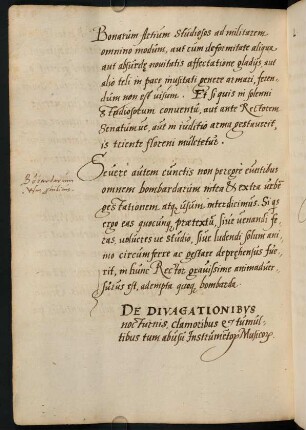 Bonarum artium studiosos ad militarem
omnino modum, aut cum deformitate aliqua
aut absurdę nouitatis affectatione gladijs, aut
alio teli in pace inusitati genere armari, feren-
dum non est uisum. Et si quis in solemni
studiosorum conuentu, aut ante Rectorem
Senatumue, aut in iuditio arma gestauerit,
is triente floreni mulctetur.
Bombardarum
usus prohibitus.
Seueri autem cunctis non peregre euntibus
omnem bombardarum intra & extra urbem
gestationem, atq; usum interdicimus. Si quis
ergo eas quocunq; prætextu, siue uenandi fe-
ras, uolucresue studio, siue ludendi solum ani-
mo circumferre ac gestare deprehensus fue-
rit, in hunc Rector grauissime animaduer-
surus est, adempta quoq; bombarda.
DE DIVAGATIONIBVS
nocturnis, clamoribus & tumul-
tibus tum abusu Instrumētorum Musicorum